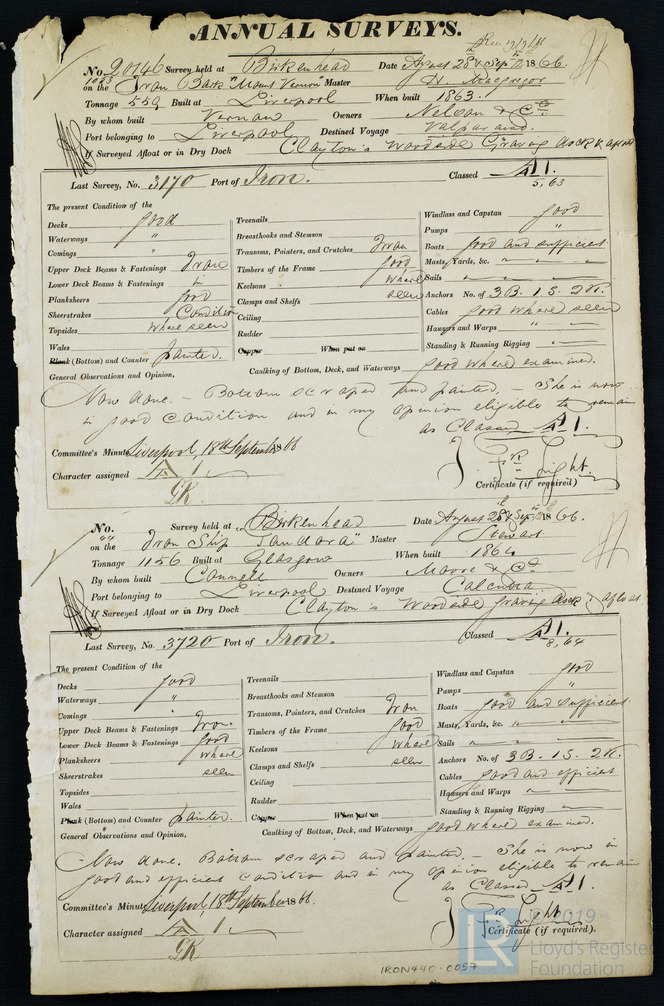 ANNUAL SURVEYS.
No. 20146 Survey held at Birkenhead Date August 28 & Sep 1866.
on the Iron Bark "Mount Vernon" Master Macgregor
Tonnage 559 Built at Liverpool When built 1863.
By whom built Vernon Owners Nelson & Co
Port belonging to Liverpool Destined Voyage Valparaiso.
If Surveyed Afloat or in Dry Dock Clayton's Woodside Graving Dock & afloat
Last Survey, No. 3170 Port of Iron. Classed A1.
5,63
The present Condition of the
Decks good
Waterways "
Comings "
Upper Deck Beams & Fastenings Iron
Lower Deck Beams & Fastenings in
Planksheers good
Sheerstrakes Condition
Topsides where seen
Wales
Plank (Bottom) and Counter painted.
Treenails
Breasthooks and Stemson
Transoms, Pointers, and Crutches Iron
Timbers of the Frame good
Keelsons where
Clamps and Shelfs seen
Ceiling
Rudder
Copper When put on
Windlass and Capstan good
Pumps "
Boats good and sufficient
Masts, Yards, &c. " " "
Sails " " "
Anchors No. of 3B. 1S. 2K.
Cables good where seen
Hawsers and Warps "
Standing & Running Rigging "
Caulking of Bottom, Deck, and Waterways good where examined.
General Observations and Opinion,
Now done. - Bottom scraped and painted. - She is now
in good condition and in my opinion eligible to remain
as Classed A1.
Committee's Minute Liverpool, 18th September 1866
Character assigned A 1
Light.
Certificate (if required)
No. "" Survey held at Birkenhead Date August 28 & Sep 1866.
on the Iron Ship "Pandora" Master Stewart
Tonnage 1156 Built at Glasgow When built 1864
By whom built Connell Owners Moore & Co
Port belonging to Liverpool Destined Voyage Calcutta
If Surveyed Afloat or in Dry Dock Clayton's Woodside Graving Dock & afloat
Last Survey, No. 3720 Port of Iron. Classed A1.
8,64
The present Condition of the
Decks good
Waterways "
Comings "
Upper Deck Beams & Fastenings Iron
Lower Deck Beams & Fastenings good
Planksheers where
Sheerstrakes seen
Topsides
Wales
Plank (Bottom) and Counter painted.
Treenails
Breasthooks and Stemson
Transoms, Pointers, and Crutches Iron
Timbers of the Frame good
Keelsons where
Clamps and Shelfs seen
Ceiling
Rudder
Copper When put on
Windlass and Capstan good
Pumps "
Boats good and sufficient
Masts, Yards, &c. " "
Sails " "
Anchors No. of 3B. 1S. 2K.
Cables good and efficient
Hawsers and Warps "
Standing & Running Rigging "
Caulking of Bottom, Deck, and Waterways good where examined.
General Observations and Opinion,
Now done. Bottom scraped and painted - She is now in
good and efficient condition and in my opinion eligible to remain
as Classed A1.
Committee's Minute Liverpool, 18th September 1866.
Character assigned A 1
Light
Certificate (if required).
LR © 2019
Lloyd's Register
Foundation
IRON440-0057